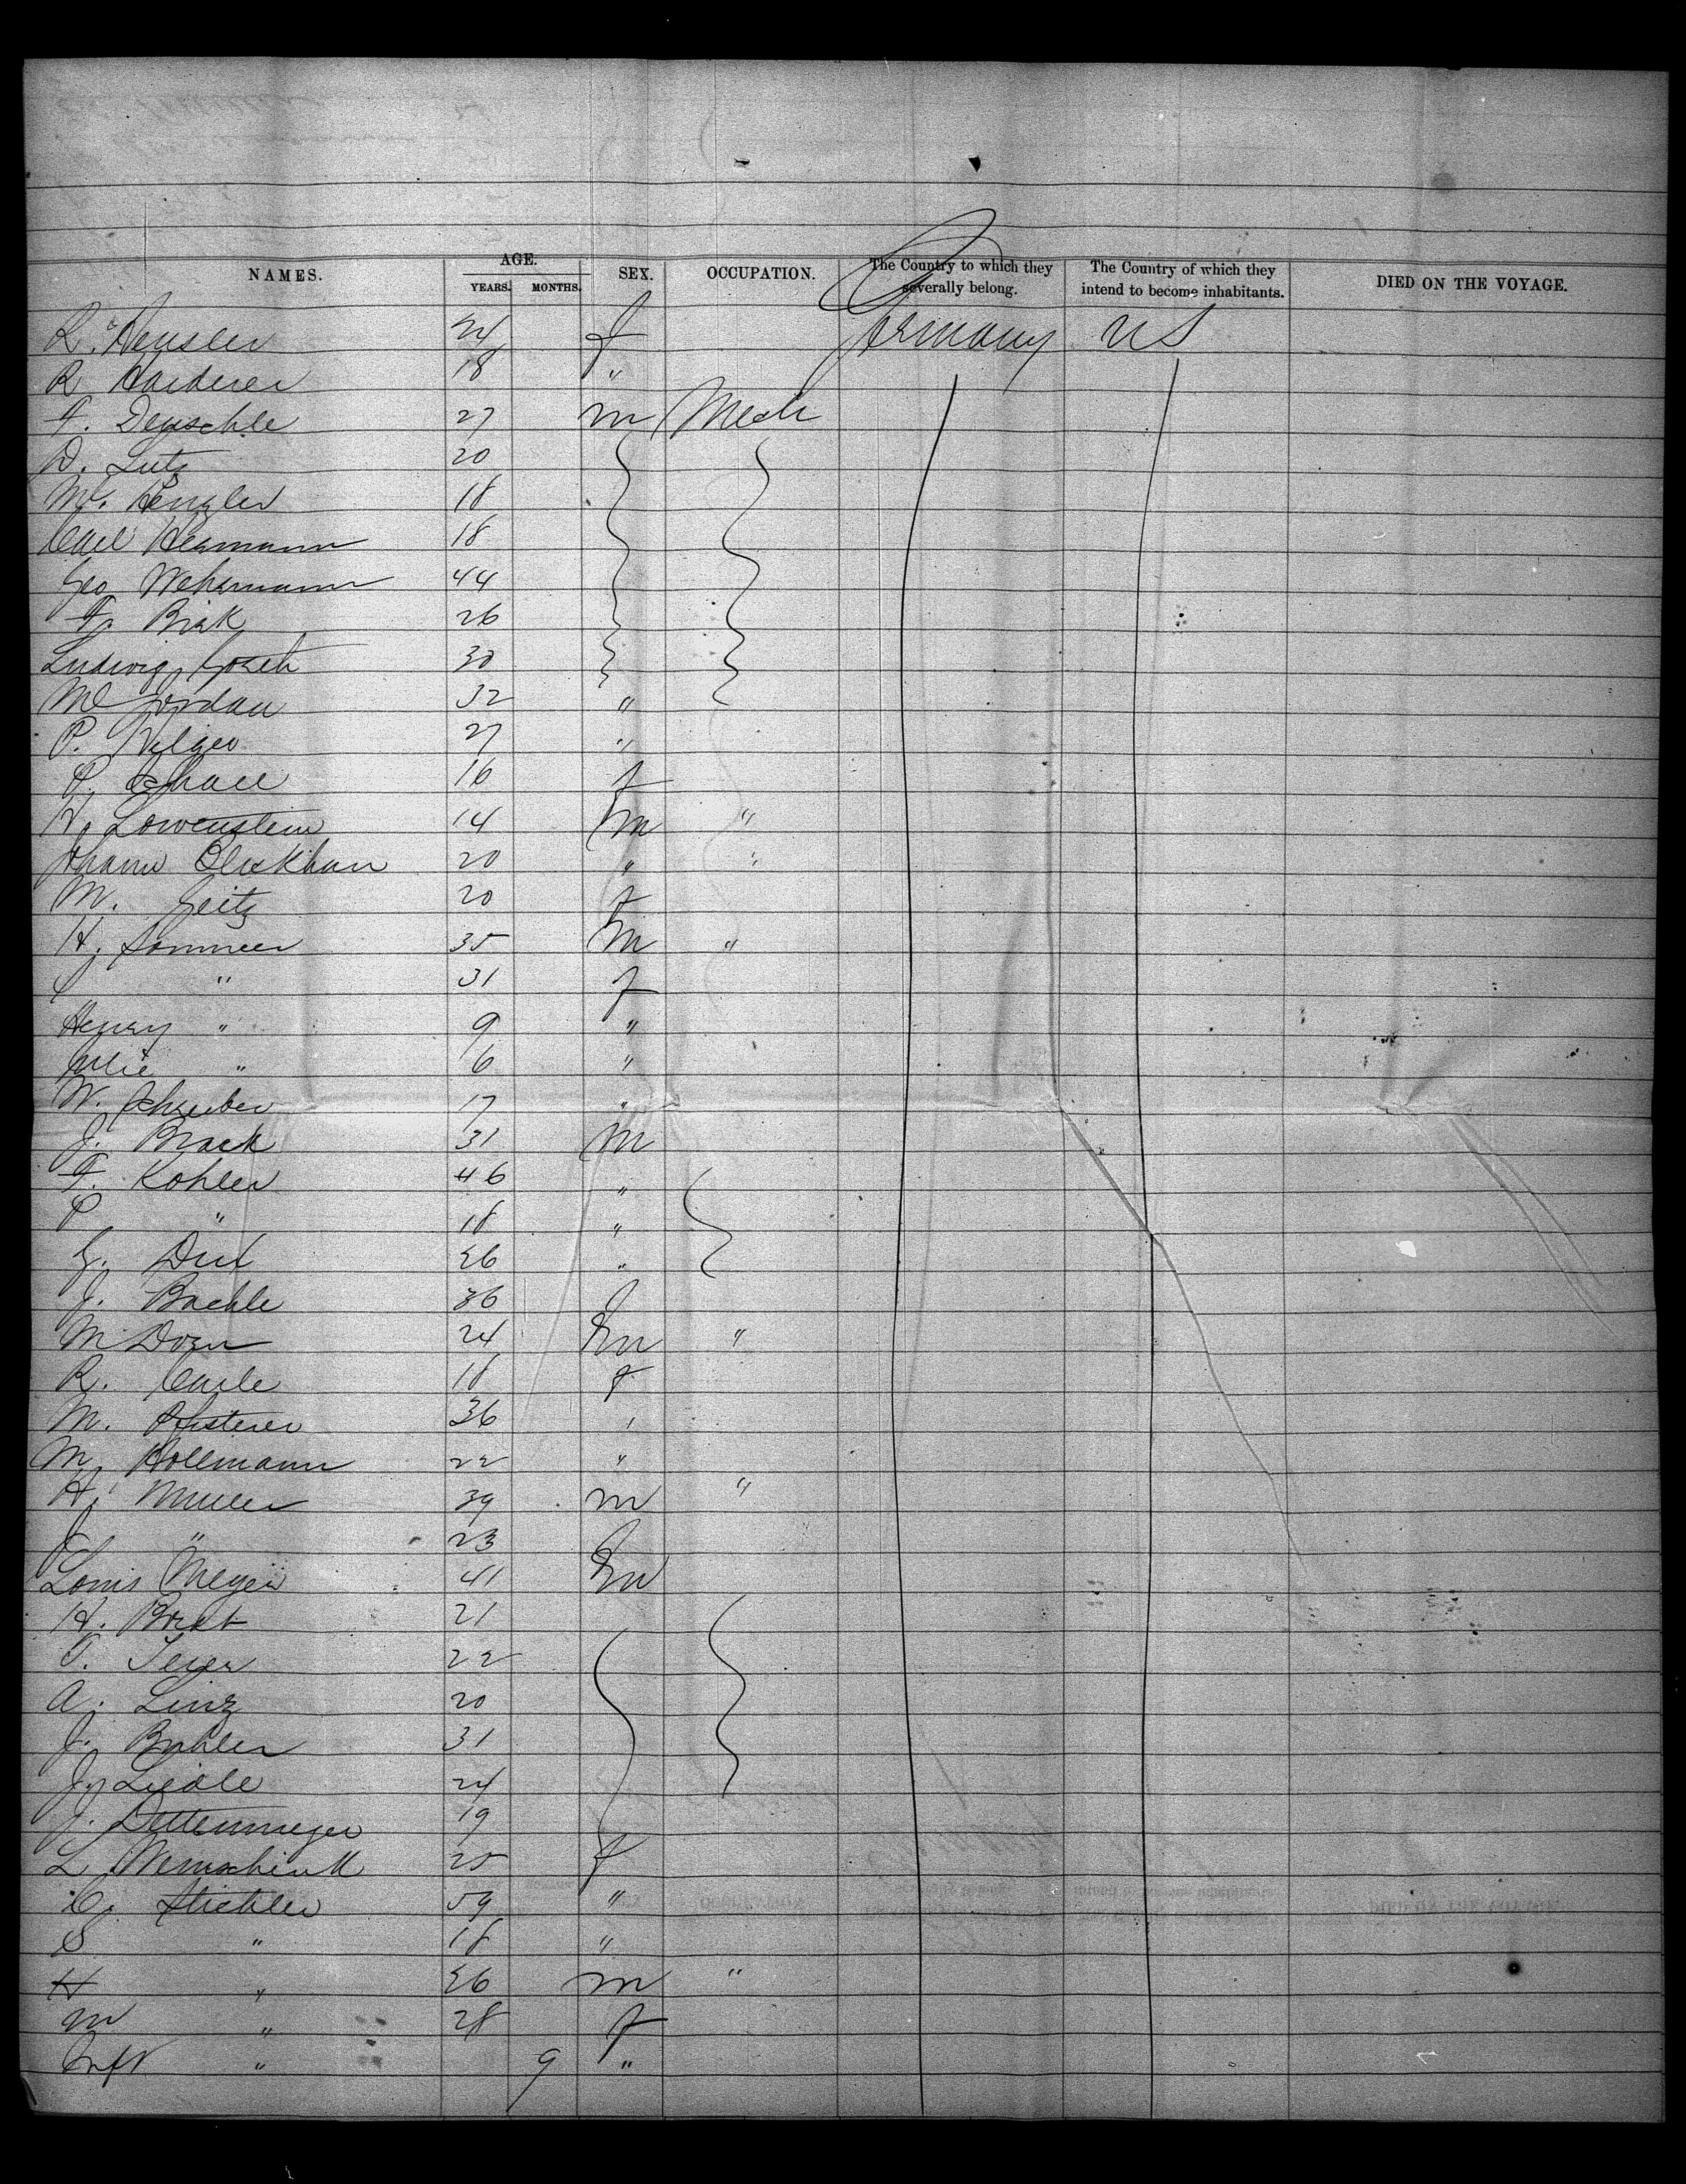 NAMES. AGE. YEARS. MONTHS. SEX. OCCUPATION. The Country to which they severally belong. The Country of which they intend to become inhabitants. DIED ON THE VOYAGE.
R. Hensler 24 f Germany US
R Harderer 18 "
F. Deuschle 27 m Mech
D. Lutz 20
M. Henzler 18
Carl Hermann 18
Geo Wehrmann 44
F. Birk 26
Ludwig 30
M Jordan 32 "
P. Hilger 27 "
P. Schall 16 f
H. Lowenstein 14 m "
Johann 20 " "
M. Seitz 20 f
H. Sommer 35 m "
" 31 f
Henry " 9 "
Julie " 6 "
W. Schreiber 17 "
J. Brack 31 m
F. Kohler 46 "
P " 18 "
G. 26 "
J. Bachle 36 f
M Dorn 24 m "
R. Carle 18 f
M. Pfisterer 36 "
M Hollmann 22 "
H. Muller 39 m "
J " 23 f
Louis Meyer 41 m
H. 21
22
A. Linz 20
J. Buhler 31
J. 24
J. Dettenmeyer 19
L 25 f
C. Stickler 59 "
S " 18 "
H " 26 m "
M " 28 f
Inft " 9 "